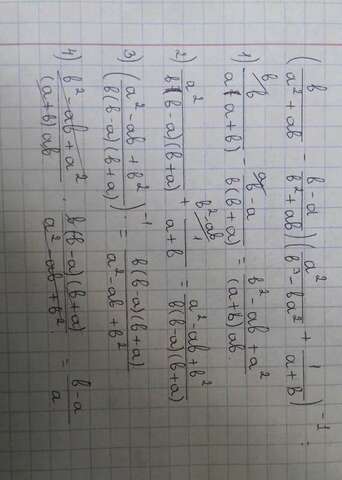 (b/(a²+ab) − (b−a)/(b²+ab))(a²/(b³−ba²) + 1/(a+b))⁻¹ :
1) b/(a(a+b)) ᵇ − (b−a)/(b(b+a)) ᵃ = (b²−ab+a²)/((a+b)ab)
2) a²/(b(b−a)(b+a)) + 1/(a+b) ᵇ²⁻ᵃᵇ = (a²−ab+b²)/(b(b−a)(b+a))
3) ((a²−ab+b²)/(b(b−a)(b+a)))⁻¹ = (b(b−a)(b+a))/(a²−ab+b²)
4) (b²−ab+a²)/((a+b)ab) · (b(b−a)(b+a))/(a²−ab+b²) = (b−a)/a